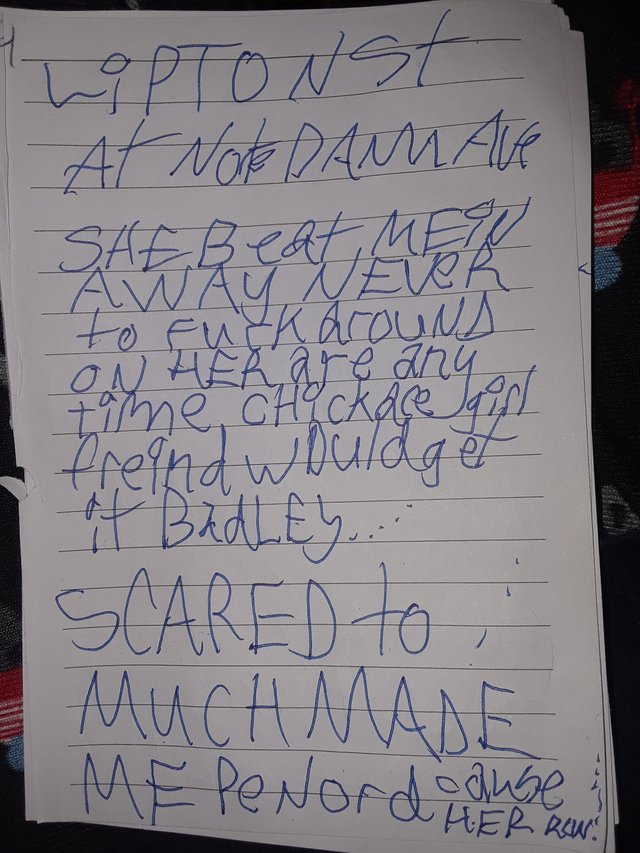 LiPTON St
At Note DAMM Ave
SHE Beat ME iN
AWAY NEVER
to FUCK drOUND
ON HER are any
time, CHickdee girl
freind wOuld get
it BADLEY.....
SCARED to
MUCH MADE
ME PeNord cause
HER